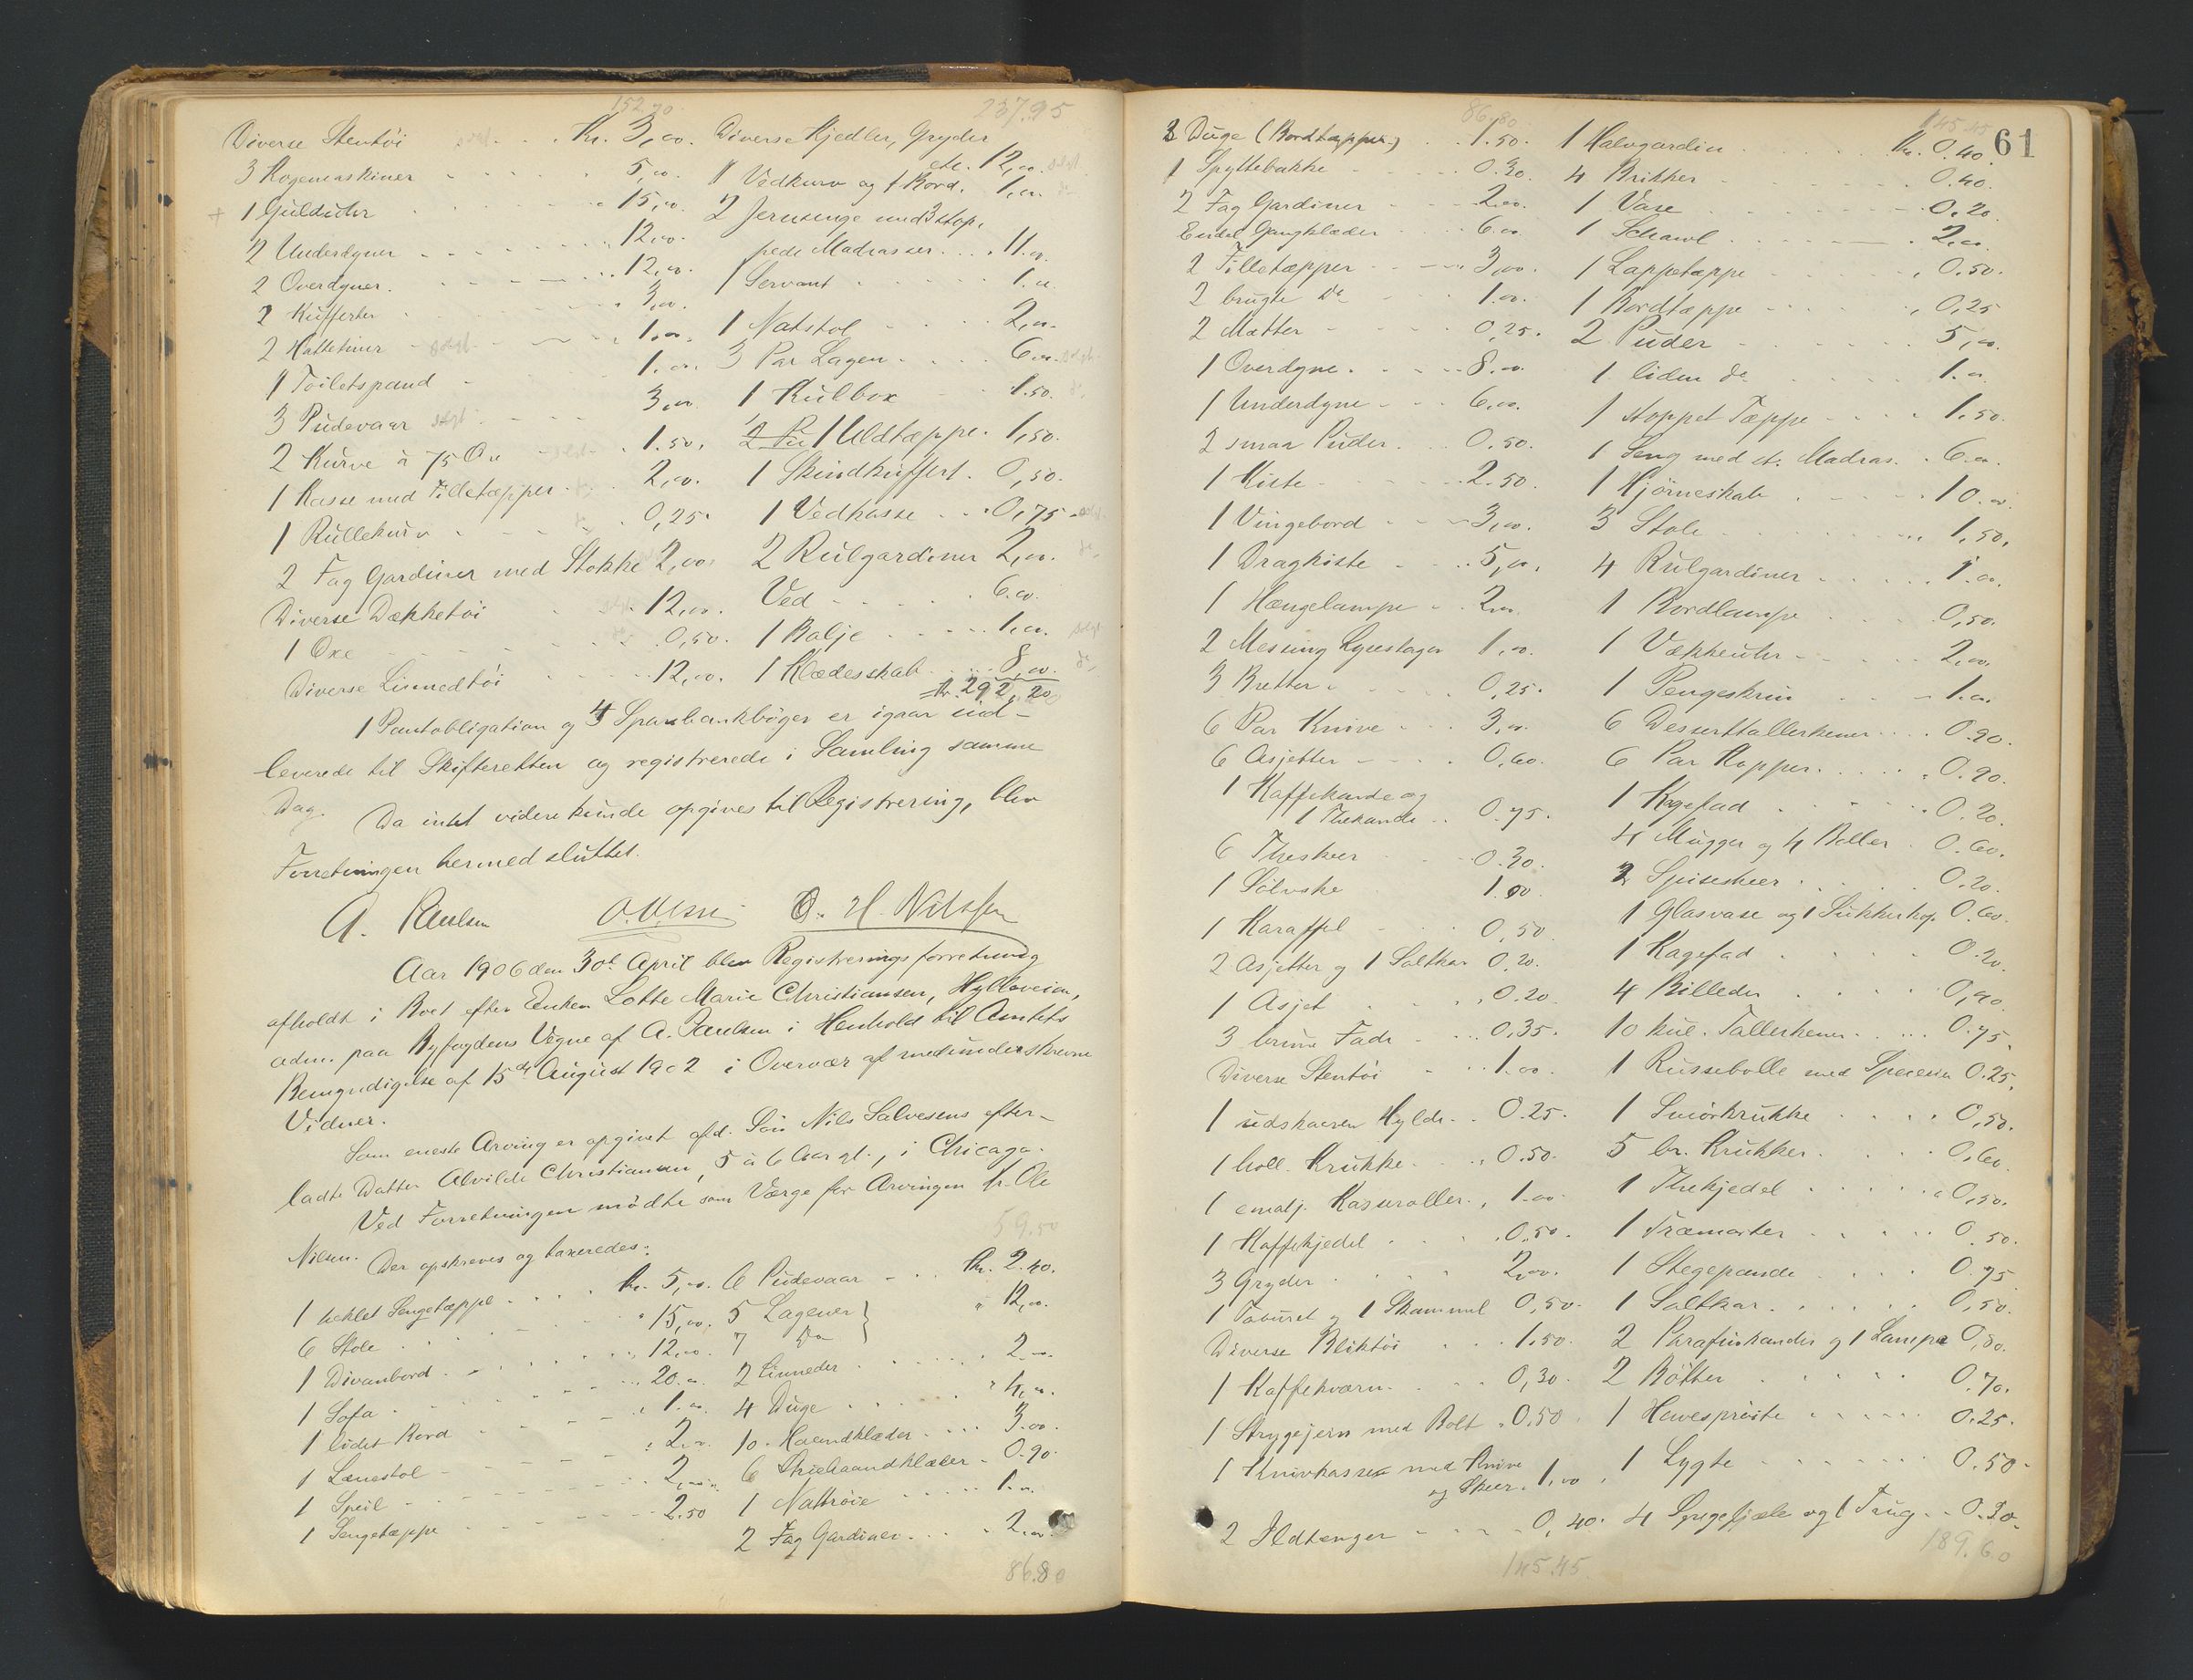 152.70
237.95
Diverse Stentöi solgt. Kr. 3,00.
3 Kogemaskiner 5,00.
1 Gulduhr 15,00.
2 Underdyner 12,00.
2 Overdyner. 12,00.
2 Kufferter 3,00.
2 Hattetiner solgt. 1,00.
1 Toiletspand 1.00.
3 Pudevaar solgt. 3,00
2 Kurve à 75 Öre 1.50.
1 Kasse med Filletæpper 2,00.
1 Rullekurv 0,25.
2 Fag Gardiner med Stokke 2,00.
Diverse Dækketöi 12,00.
1 Öxe 0,50.
Diverse Linnedtöi 12,00.
Diverse Kjedler, Gryder
etc. 12,00. solgt
1 Vedkurv og 1 Bord. 1,00.
2 Jernsenge med 3 stop.
pede Madrasser 11.00.
1 Servant 1.00
1 Natstol 2,00.
3 Par Lagen 6.00. solgt.
1 Kulbox 1.50. do
2 Pu 1 Uldtæppe. 1,50.
1 Skindkuffert. 0,50.
1 Vedkasse 0,75. solgt
2 Rulgardiner 2,00. do
Ved 6.00.
1 Balje 1.00. solgt
1 Klædesskab 8,00. do
Kr. 292,20
1 Pantobligation og 4 Sparebankböger er igaar ind-
leverede til Skifteretten og registrerede i Samling samme
Dag.
Da intet videre kunde opgives til Registrering, blev
Forretningen hermed sluttet.
A. Paulsen O. H. Nilssen
Aar 1906 den 30t April blev Registreringsforretning
afholdt i Boet efter Enken Lotte Marie Christiansen, Hylloveien,
adm. paa Byfogdens Vegne af A. Paulsen i Henhold til Amtets
Bemyndigelse af 15de August 1902 i Overvær af medunderskrevne
Vidner.
Som eneste Arving er opgivet afd. Sön Nils Salvesens efter-
ladte Datter Alvilde Christiansen, 5 à 6 Aar gl., i Chicago.
Ved Forretningen mödte som Værge for Arvingen hr. Ole
Nilsen.
59.50
Der opskreves og taxeredes:
1 heklet Sengetæppe Kr. 5,00.
6 Stole 15,00.
1 Divanbord 12,00.
1 Sofa 20.00
1 lidet Bord 1.00
1 Lænestol 2,00.
1 Speil 2,00
1 Sengetæppe 2.50
6 Pudevaar Kr. 2.40.
5 Lagener }
7 Do } 12,00.
2 Linneder 2.00
4 Duge 4,00.
10 Haandklæder 3.00.
6 Haandklæder 0.90.
1 Nattröie 1.00
2 Fag Gardiner 2.00
86.80
86,80
145.45
61
3 Duge (Bordtæpper) 1.50.
1 Spyttebakke 0.30.
2 Fag Gardiner 2.00.
Endel Gangklæder 6.00
2 Filletæpper 3,00.
2 brugte Do 1.00.
2 Matter 0,25.
1 Overdyne 8.00
1 Underdyne 6,00.
2 smaa Puder 0.50.
1 Kiste 2.50.
1 Vingebord 3,00.
1 Dragkiste 5,00.
1 Hængelampe 2.00.
2 Messing Lysestager 1,00.
3 Bretter 0,25.
6 Par Knive 3,00
6 Asjetter 0,60.
1 Kaffekande og
1 Thekande 0.75.
6 Theskeer 0.30.
1 Sölvske 1.00.
1 Karaffel 0,50
2 Asjetter og 1 Saltkar 0,20.
1 Asjet 0.20.
3 brune Fade 0,35.
Diverse Stentöi 1.00.
1 udskaaren Hylde 0.25.
1 holl. Krukke 0.50.
1 emalj. Kasseroller 1.00
1 Kaffekjedel 0,50.
3 Gryder 2,00.
1 Taburet og 1 Skammel 0,50.
Diverse Bliktöi 1.50.
1 Kaffekværn 0,30.
1 Strygejern med Bolt 0.50
1 Knivkasse med Knive
og Skeer. 1,00
2 Ildtænger 0,40.
145.45.
1 Halvgardin Kr. 0.40.
4 Brikker 0.40.
1 Vase 0.20.
1 Schawl 2,00.
1 Lappetæppe 0.50.
1 Bordtæppe 0,25
2 Puder 5,00.
1 liden do 1.00
1 stoppet Tæppe 1.50.
1 Seng med st. Madras 6.00.
1 Hjörneskab 10.00.
3 Stole 1,50.
4 Rulgardiner 1.00.
1 Bordlampe 0,50.
1 Vækkeuhr 2,00.
1 Pengeskrin 1.00.
6 Desserttallerkener 0.90.
6 Par Kopper 0.90.
1 Kagefad 0.20.
4 Mugger og 4 Boller 0.60.
2 Spiseskeer 0.20.
1 Glasvase og 1 Sukkerkop 0.60.
1 Kagefad 0.20.
4 Billeder 0,40.
10 Tallerkener 0.75.
1 Russebolle med 0.25.
1 Smörkrukke 0,50.
5 br. Krukker 0,60.
1 Thekjedel 0,50.
1 Træmorter 0.50.
1 Stegepande 0.75
1 Saltkar 0,50.
2 Parafinkander og 1 Lampe 0,80.
2 Bötter 0.70.
1 Havespröite 0.25.
1 Lygte 0.50.
4 og 1 Trug 0.30.
189.60